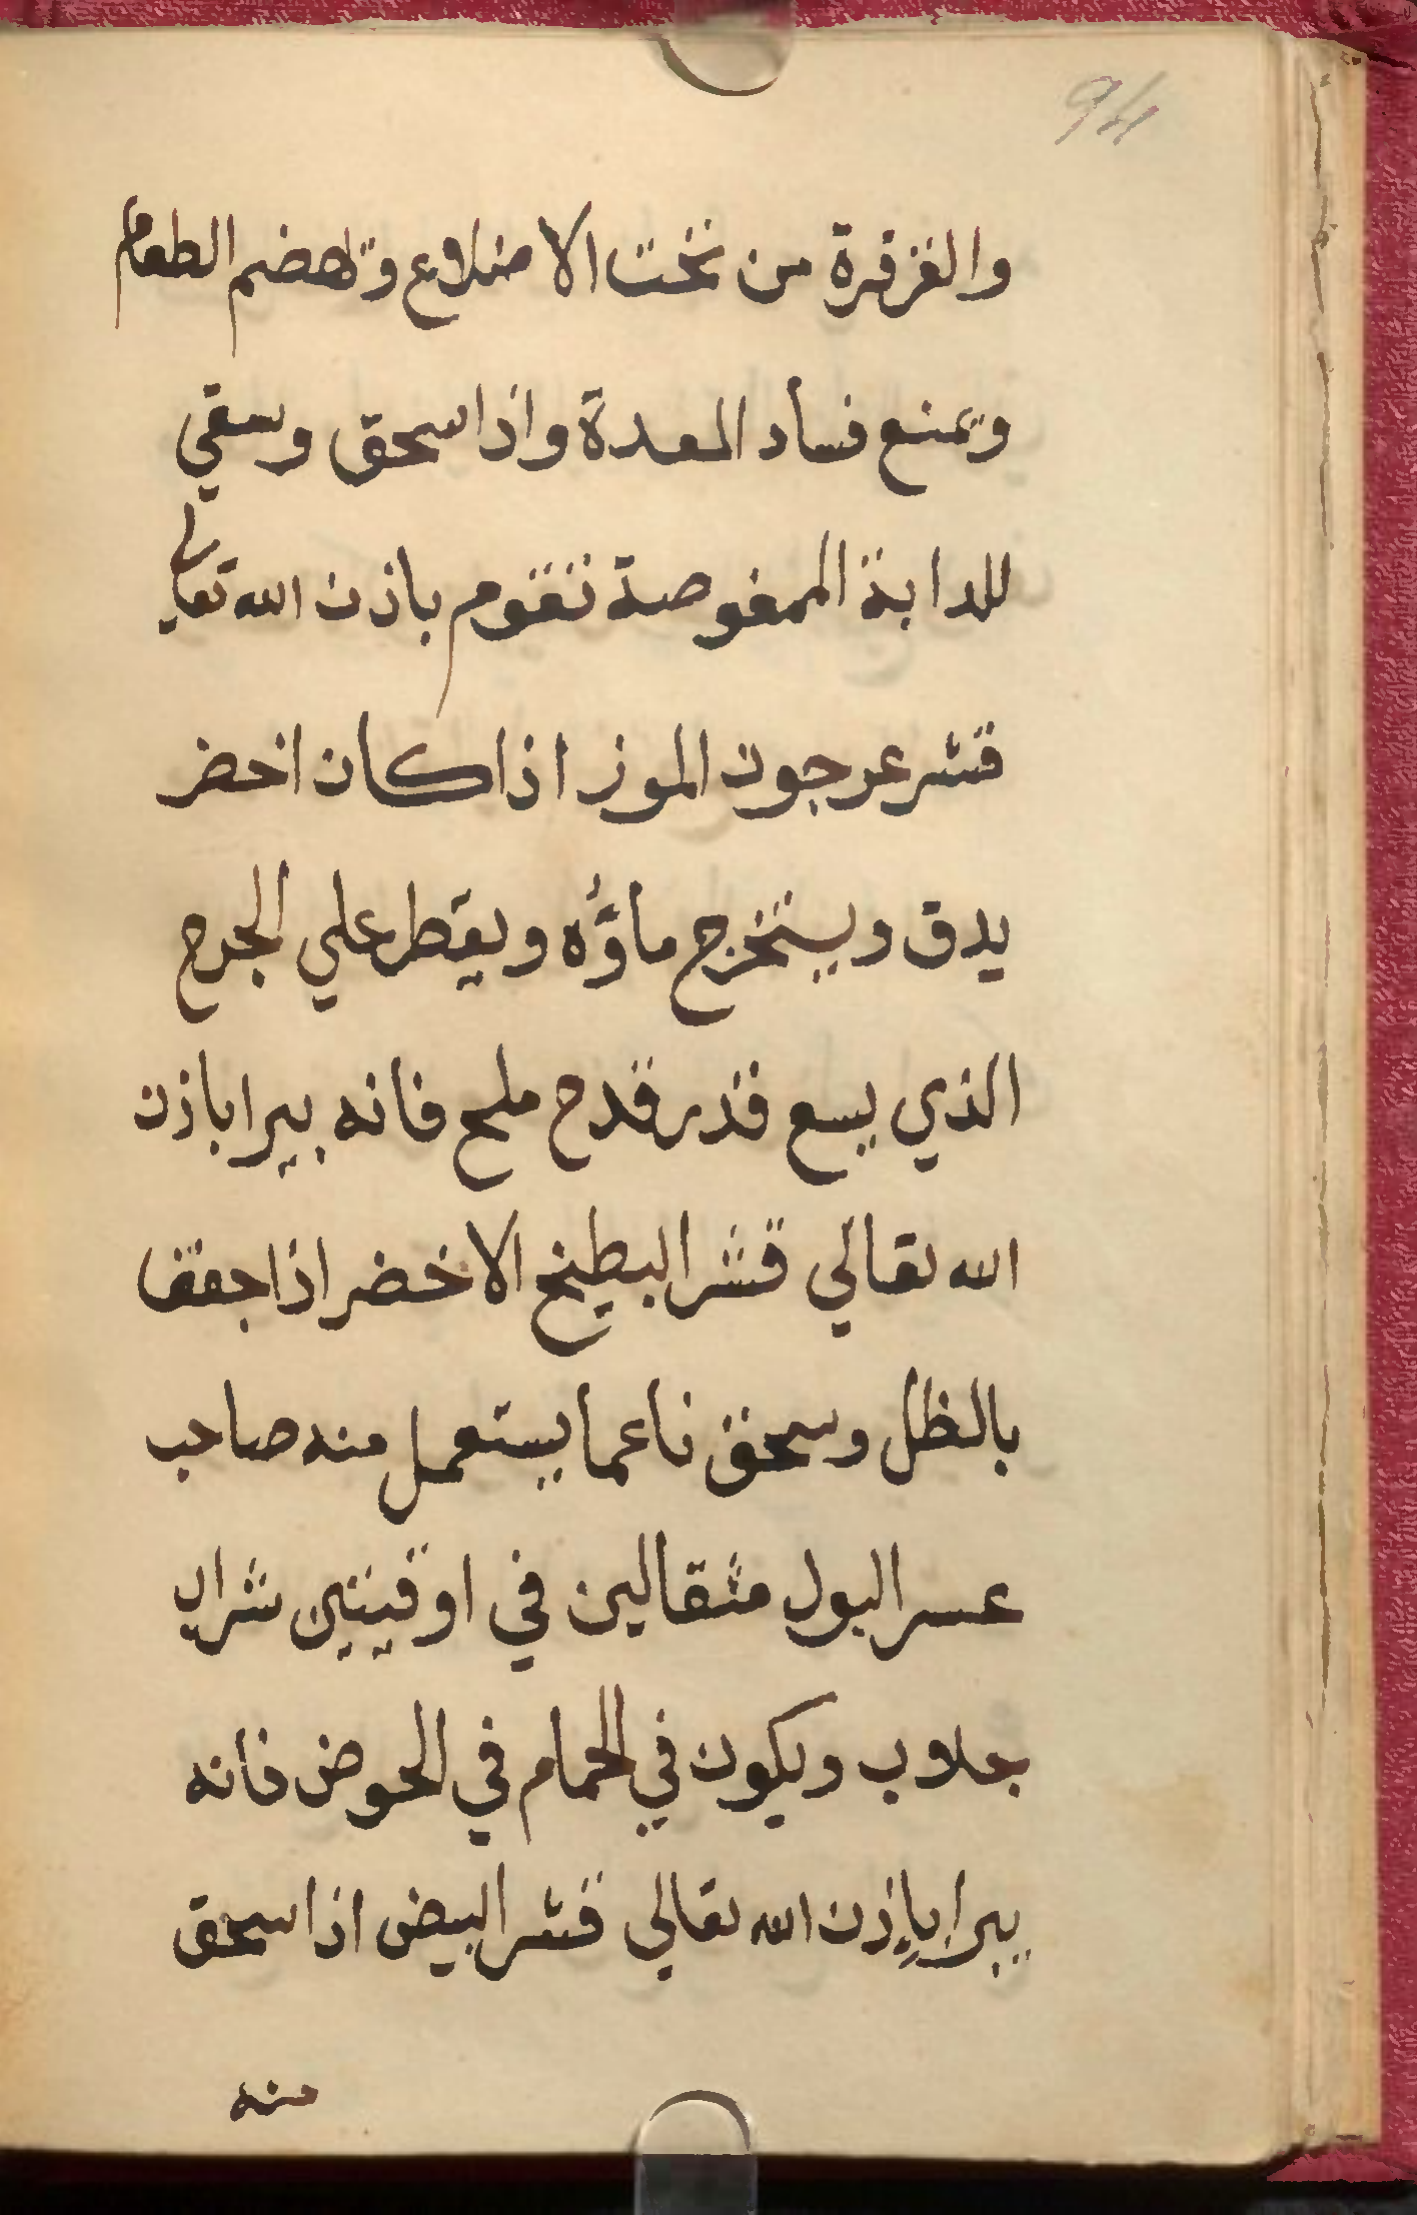 94
والغرقرة من تخت الاضلاع وتهضم الطعام
وتمنع فساد المعدة واذا سحق وسقي
للدابة الممغوصة تقوم باذن الله تعالي
قشر عرجون الموز اذا كان اخضر
يدق ويستخرج ماؤه ويقطر علي الجرح
الذي يسع قدر قدح ملح فانه يبرا باذن
الله تعالي قشر البطيخ الاخضر اذا جفف
بالظل وسحق ناعما يستعمل منه صاحب
عسر البول مثقالين في اوقيتين شراب
جلاب ويكون في الحمام في الحوض فانه
يبرا باذن الله تعالي قشر البيض اذا سحق
منه